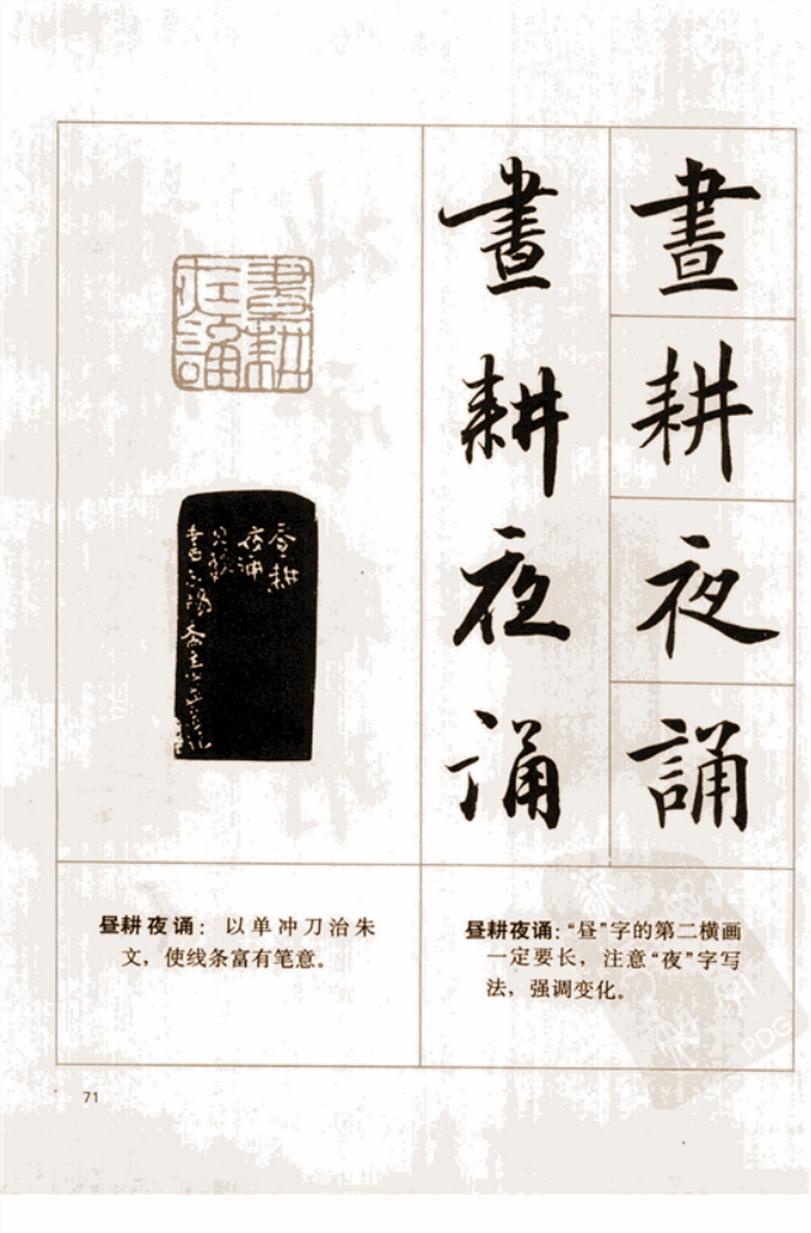 晝
耕
夜
誦
晝
耕
夜
诵
晝耕
夜誦
昼耕
夜诵
昼耕夜诵：以单冲刀治朱
文，使线条富有笔意。
昼耕夜诵：“昼”字的第二横画
一定要长，注意“夜”字写
法，强调变化。
71
PDG